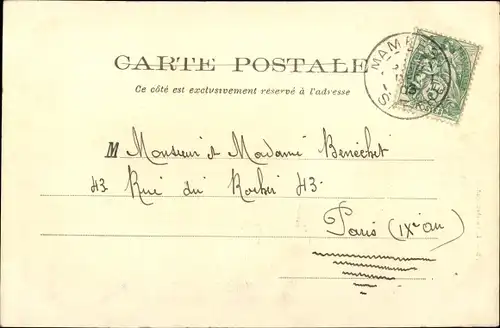 CARTE POSTALE
Ce côté est exclusivement réservé à l'adresse
M Monsieur & Madame Benéchet
43 Rue du Rocher 43.
Paris (IXe arr)